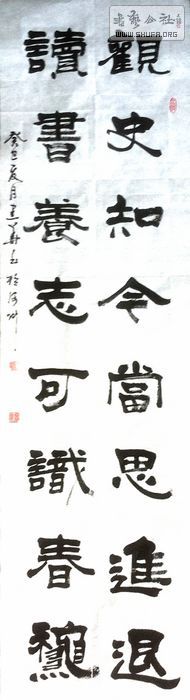 書藝公社
WWW.SHUFA.ORG
觀史知今當思進退
讀書養志可識春龝
癸巳夏月